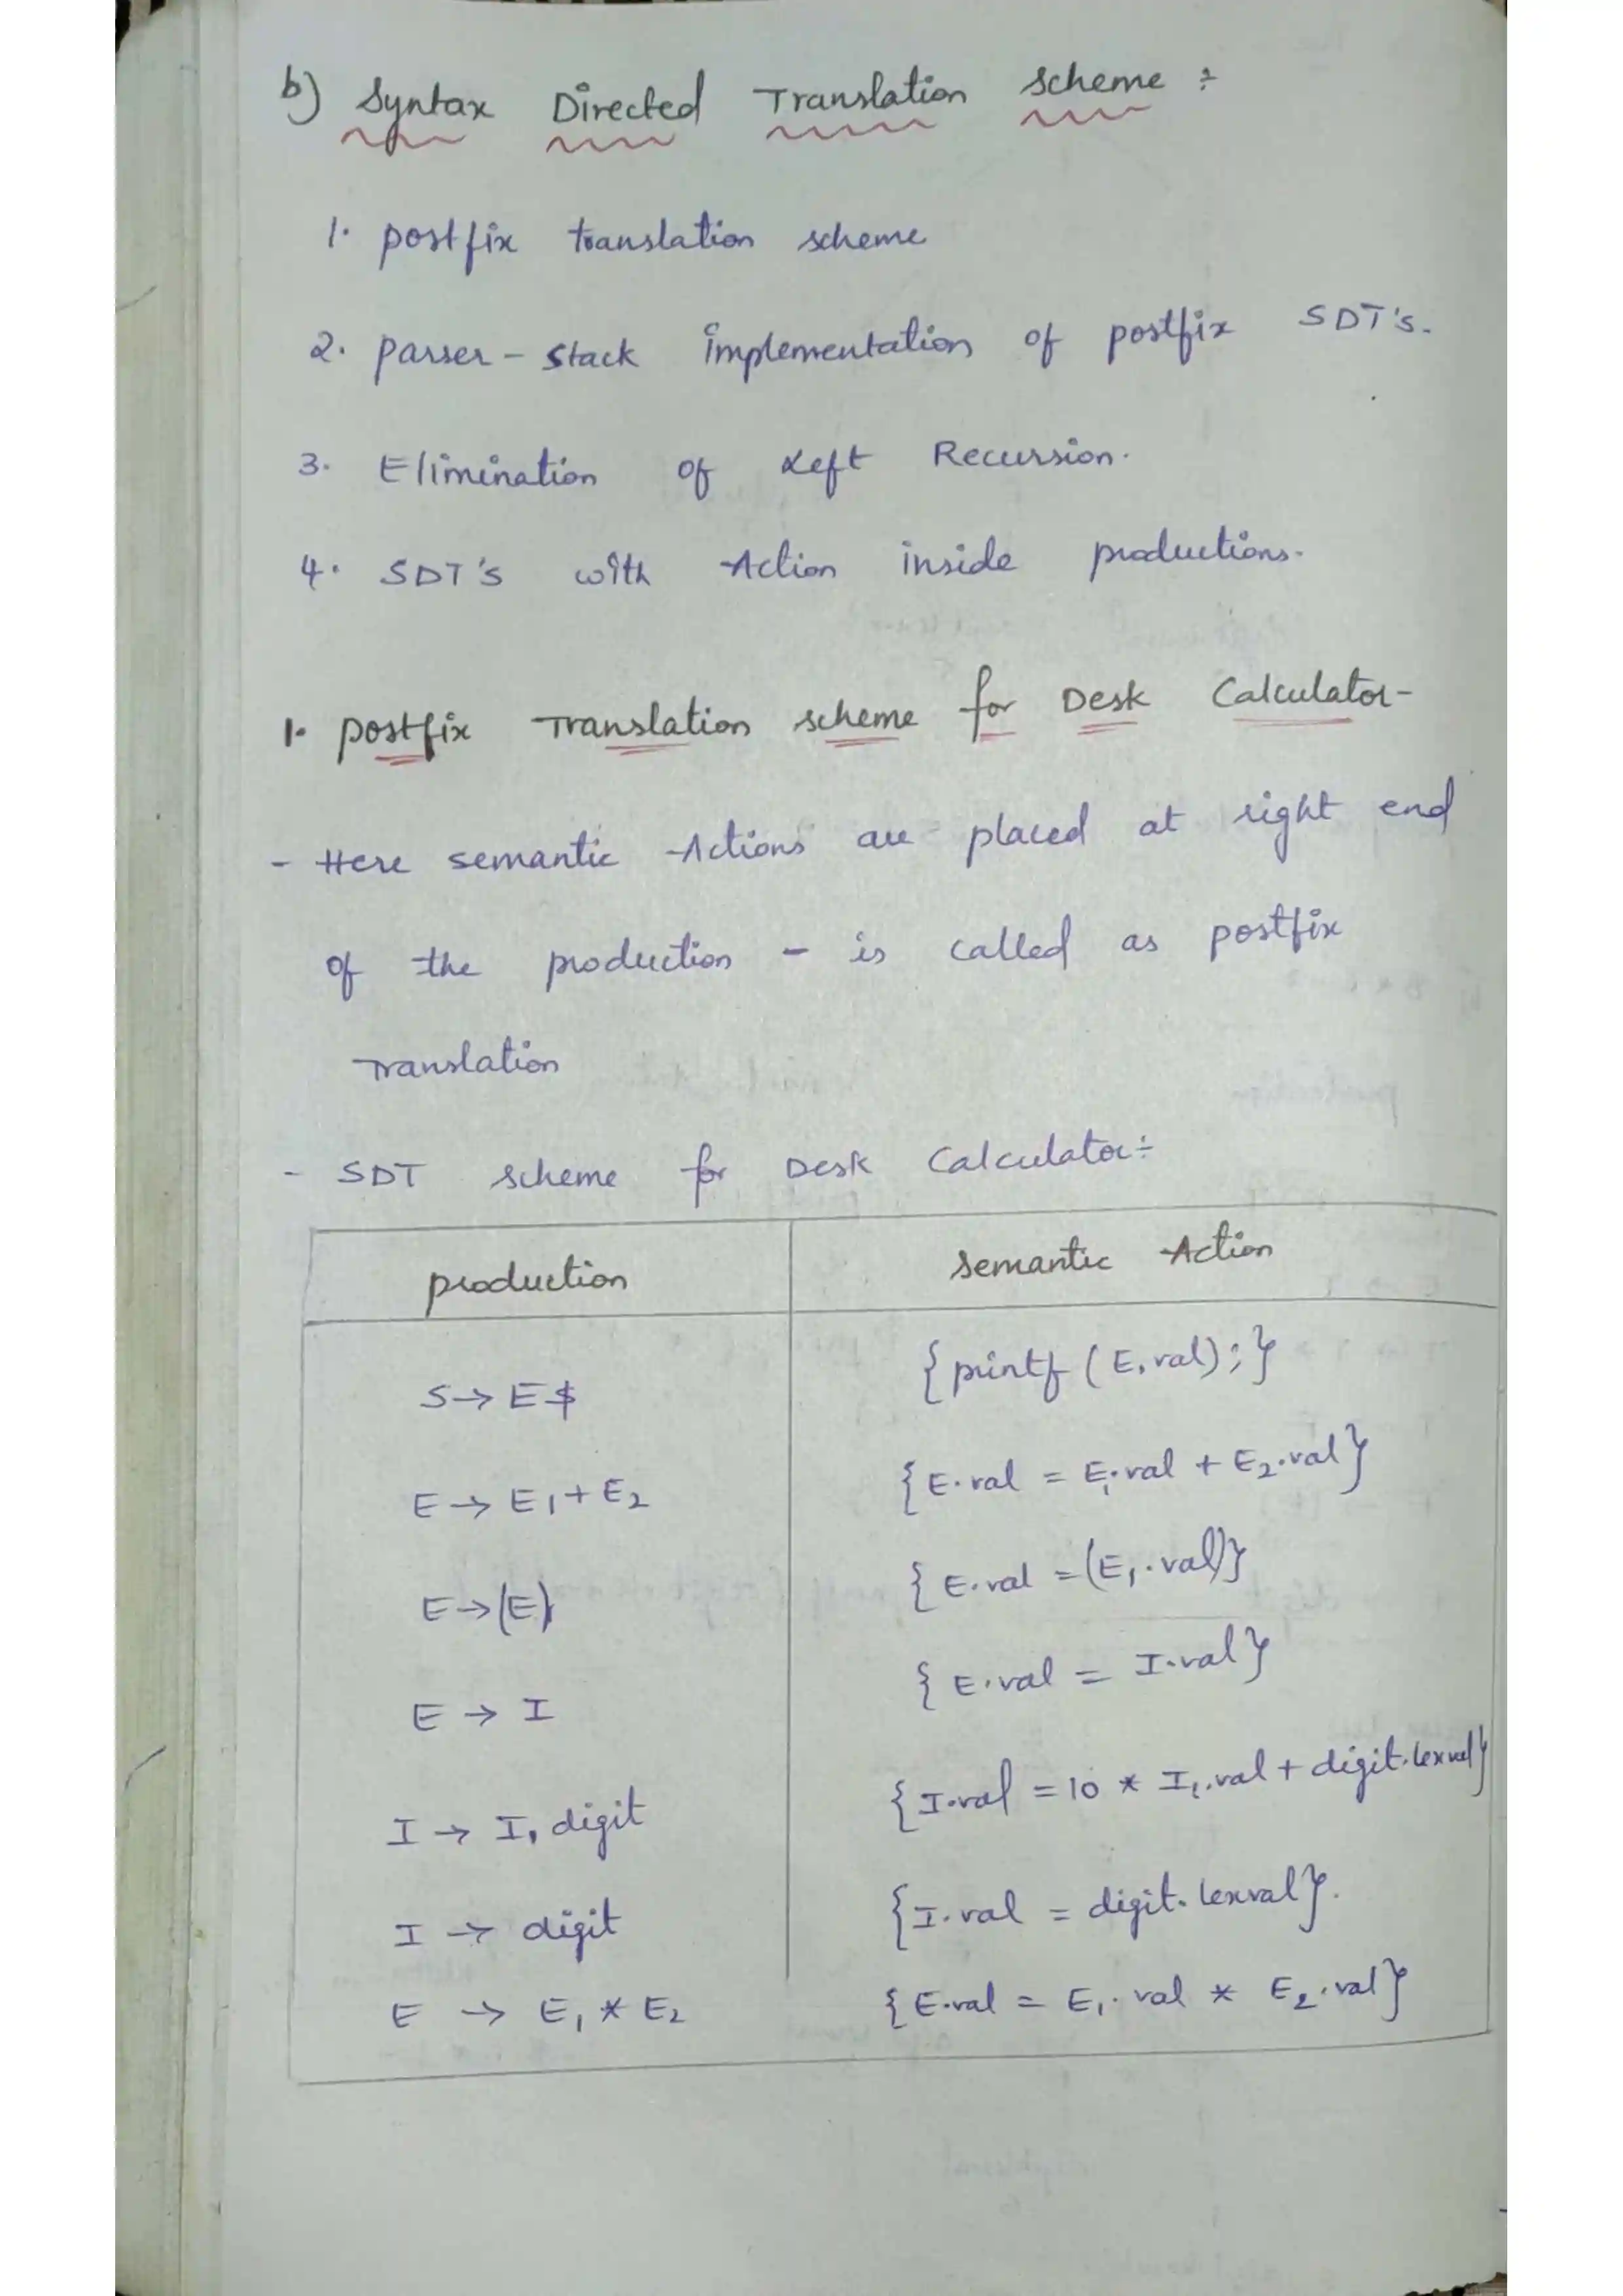 b) Syntax Directed Translation Scheme :-
1. postfix translation scheme
2. parser - stack implementation of postfix SDT's.
3. Elimination of Left Recursion.
4. SDT's with Action inside productions.
1. postfix Translation scheme for Desk Calculator-
- Here semantic Actions are placed at right end
of the production - is called as postfix
Translation
- SDT scheme for Desk Calculator:-
production semantic Action
S → E$ {printf (E.val);}
E → E1 + E2 {E.val = E1.val + E2.val}
E → (E) {E.val = (E1.val)}
E → I {E.val = I.val}
I → I1 digit {I.val = 10 * I1.val + digit.lexval}
I → digit {I.val = digit.lexval}.
E → E1 * E2 {E.val = E1.val * E2.val}